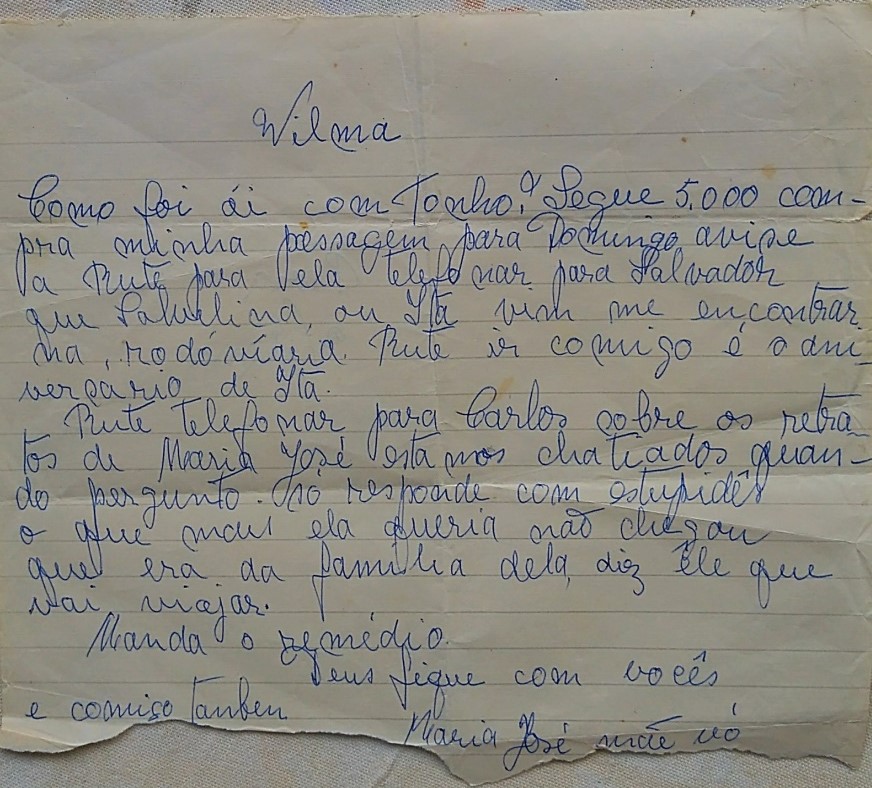 Wilma
Como foi ái com Tonho? Segue 5.000 com-
pra minha passagem, para Domingo, avise
a Rute para ela telefonar para Salvador
que ou Itã vim me encontrar
na, rodóviaria. Rute ir comigo é o ani
versario de Itã.
Rute telefonar para Carlos sobre os retra-
tos de Maria José estamos chatiados quan-
do pergunto. só responde com estupidês
o que mais ela queria não chegou
que era da família dela, diz êle que
vai viajar.
Manda o remédio.
Deus fique com vocês
e comigo tanben
Maria José mãe vó